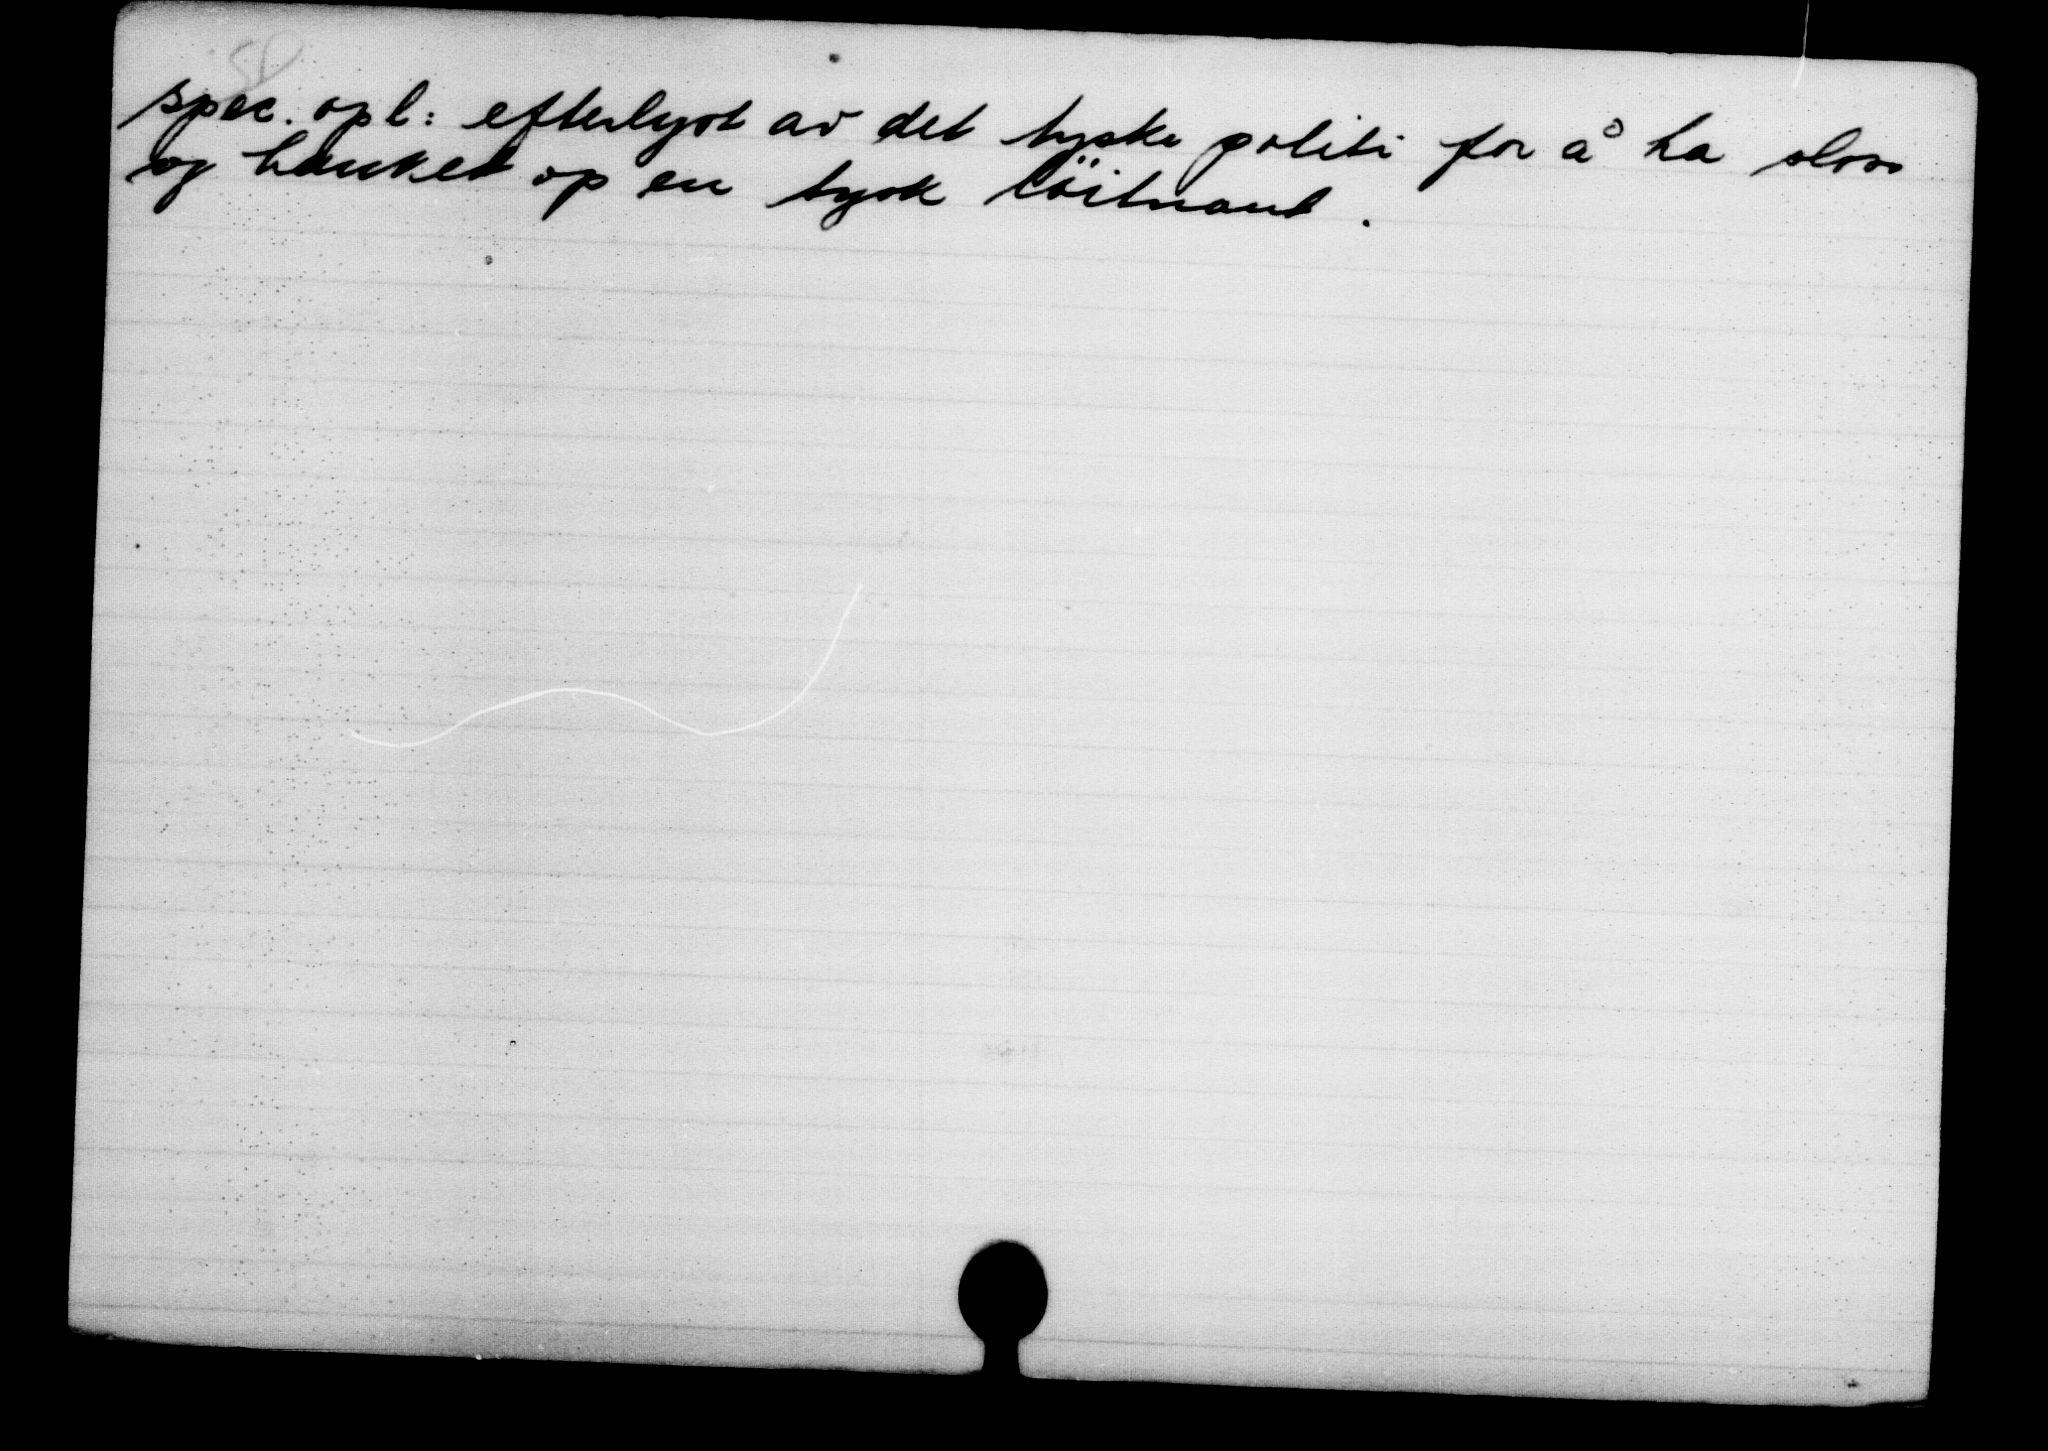 spec. opl: efterlyst av det tyske politi for å ha slos
og hanket op en tysk löitnant.